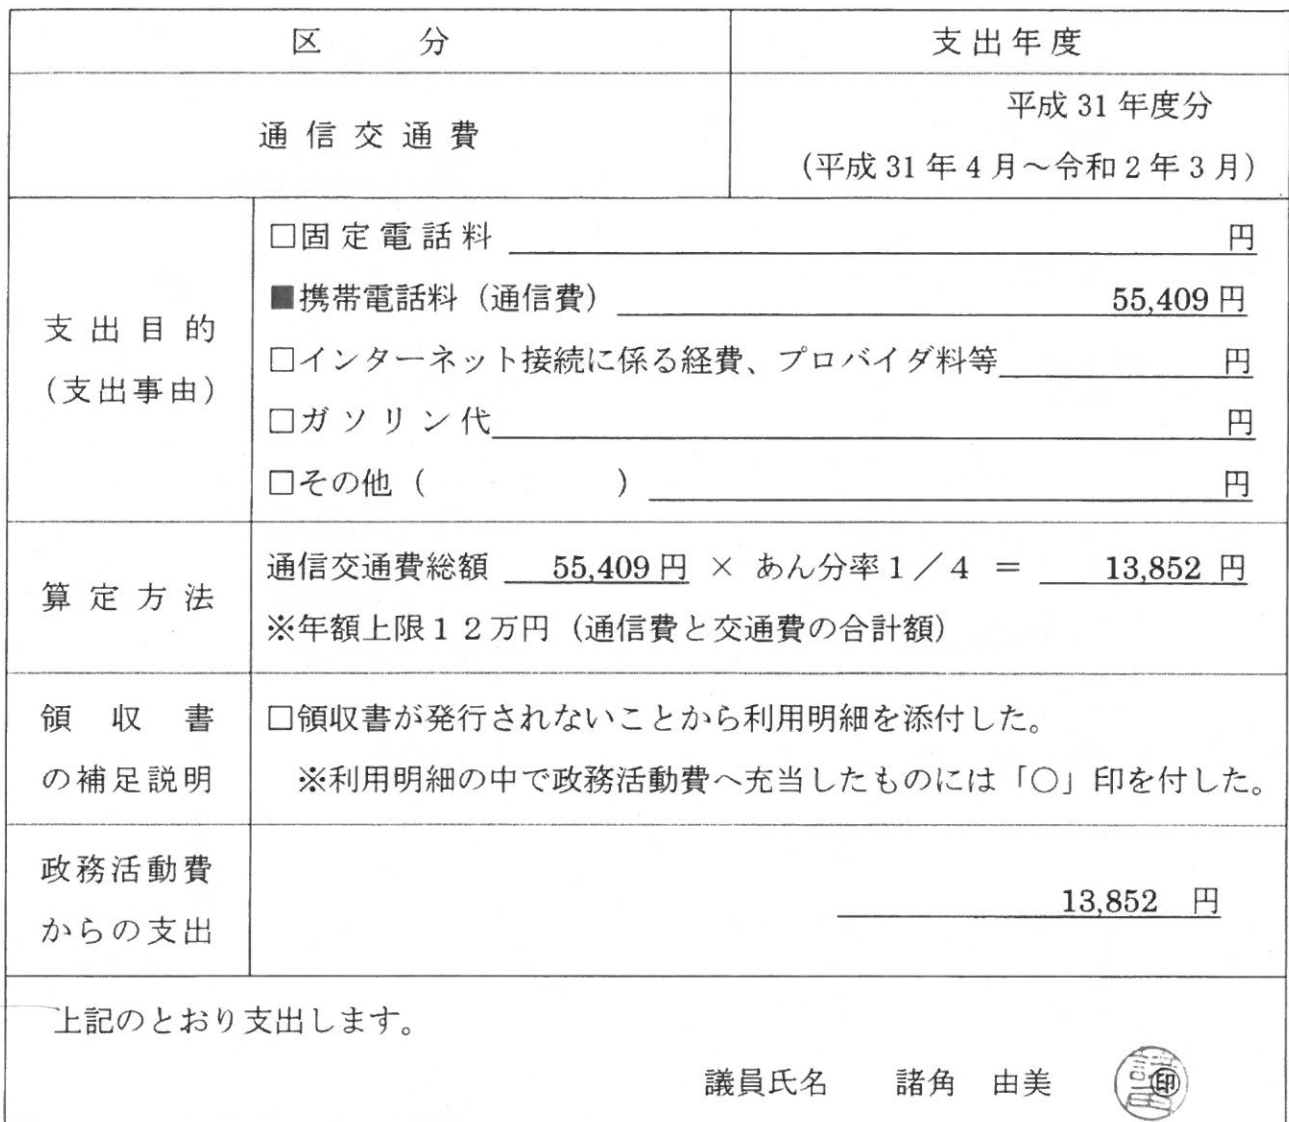 区 分 支出年度
通信交通費 平成31年度分
(平成31年4月～令和2年3月)
支出目的
(支出事由)
□固定電話料 円
■携帯電話料(通信費) 55,409円
□インターネット接続に係る経費、プロバイダ料等 円
□ガソリン代 円
□その他( ) 円
算定方法
通信交通費総額 55,409円 × あん分率1／4 = 13,852 円
※年額上限12万円(通信費と交通費の合計額)
領収書
の補足説明
□領収書が発行されないことから利用明細を添付した。
※利用明細の中で政務活動費へ充当したものには「○」印を付した。
政務活動費
からの支出
13,852 円
上記のとおり支出します。
議員氏名 諸角 由美 ㊞